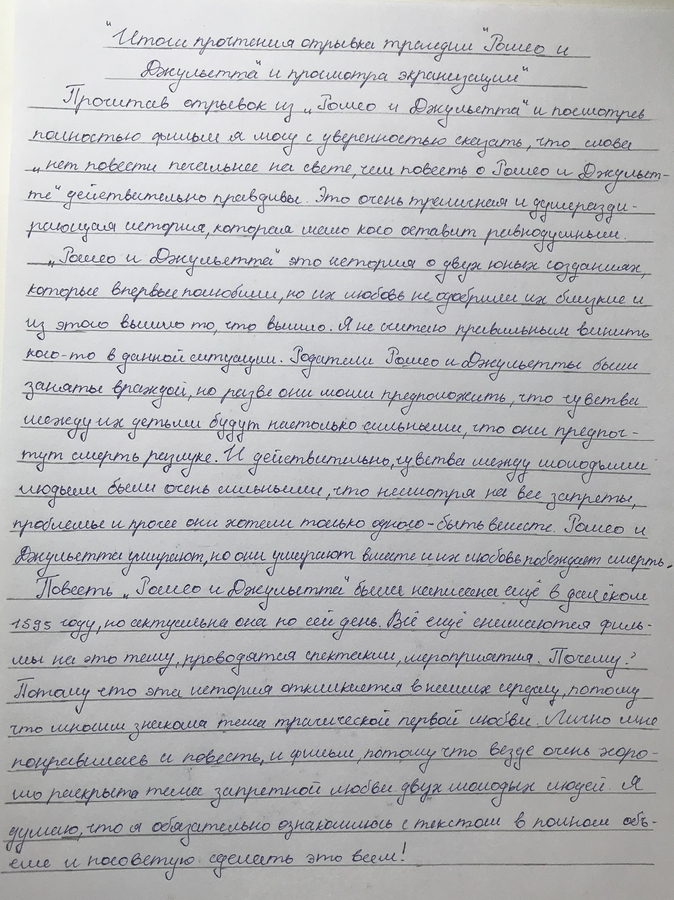 "Итоги прочтения отрывка трагедии "Ромео и
Джульетта" и просмотра экранизации"
Прочитав отрывок из „Ромео и Джульетта" и посмотрев
полностью фильм я могу с уверенностью сказать, что слова
„нет повести печальнее на свете, чем повесть о Ромео и Джульет-
те" действительно правдивы. Это очень трагичная и душеразди-
рающая история, которая мало кого оставит равнодушным.
„Ромео и Джульетта" это история о двух юных созданиях,
которые впервые полюбили, но их любовь не одобрили их близкие и
из этого вышло то, что вышло. Я не считаю правильным винить
кого-то в данной ситуации. Родители Ромео и Джульетты были
заняты враждой, но разве они могли предположить, что чувства
между их детьми будут настолько сильными, что они предпоч-
тут смерть разлуке. И действительно, чувства между молодыми
людьми были очень сильными, что несмотря на все запреты,
проблемы и прочее они хотели только одного - быть вместе. Ромео и
Джульетта умирают, но они умирают вместе и их любовь побеждает смерть.
Повесть „Ромео и Джульетта" была написана ещё в далёком
1595 году, но актуальна она по сей день. Всё ещё снимаются филь-
мы на эту тему, проводятся спектакли, мероприятия. Почему?
Потому что эта история откликается в наших сердцах, потому
что многим знакома тема трагической первой любви. Лично мне
понравилась и повесть, и фильм, потому что везде очень хоро-
шо раскрыта тема запретной любви двух молодых людей. Я
думаю, что я обязательно ознакомлюсь с текстом в полном объ-
еме и посоветую сделать это всем!